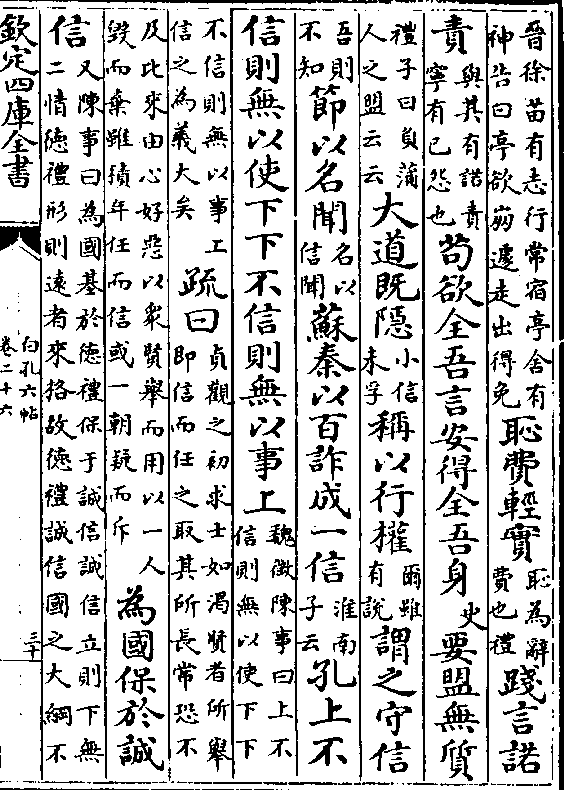 晉徐苗有志行常宿亭舍有
神告曰亭欲崩遽走出得免
恥費輕實
恥為辭
費也禮
踐言諾
責
與其有諾責
寧有已怨也
苟欲全吾言安得全吾身
史
要盟無質
禮子曰負蒲
人之盟云云
大道既隱
小信
未孚
稱以行權
爾雖
有說
謂之守信
吾則
不知
節以名聞
名以
信聞
蘇秦以百詐成一信
淮南
子云
孔上不
信則無以使下下不信則無以事上
魏徵陳事曰上不
信則無以使下下
不信則無以事工
信之為義大矣
疏曰
貞觀之初求士如渴賢者所舉
即信而任之取其所長常恐不
及比來由心好惡以衆賢舉而用以一人
毀而棄雖積年任而信或一朝疑而斥
為國保於誠
信
又陳事曰為國基於德禮保于誠信誠信立則下無
二情德禮形則遠者來挌故德禮誠信國之大綱不
欽定四庫全書
白孔六帖
卷二十六
三十